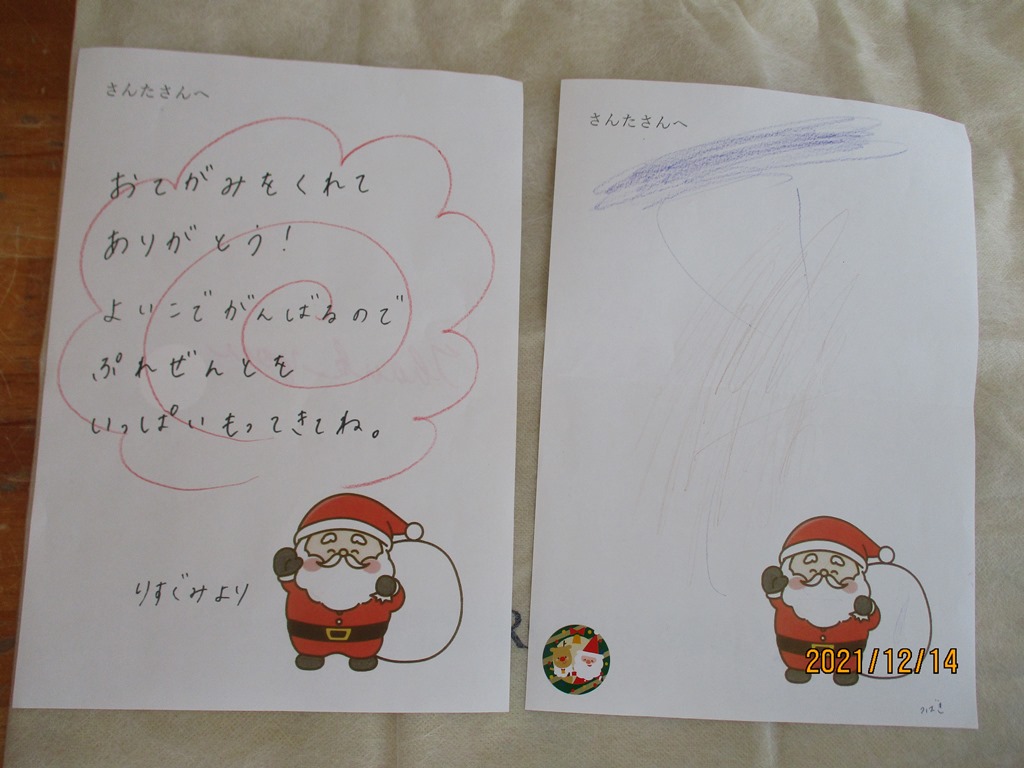 さんたさんへ
おてがみをくれて
ありがとう!
よいこでがんばるので
ぷれぜんとを
いっぱいもってきてね。
りすぐみより
さんたさんへ
2021/12/14